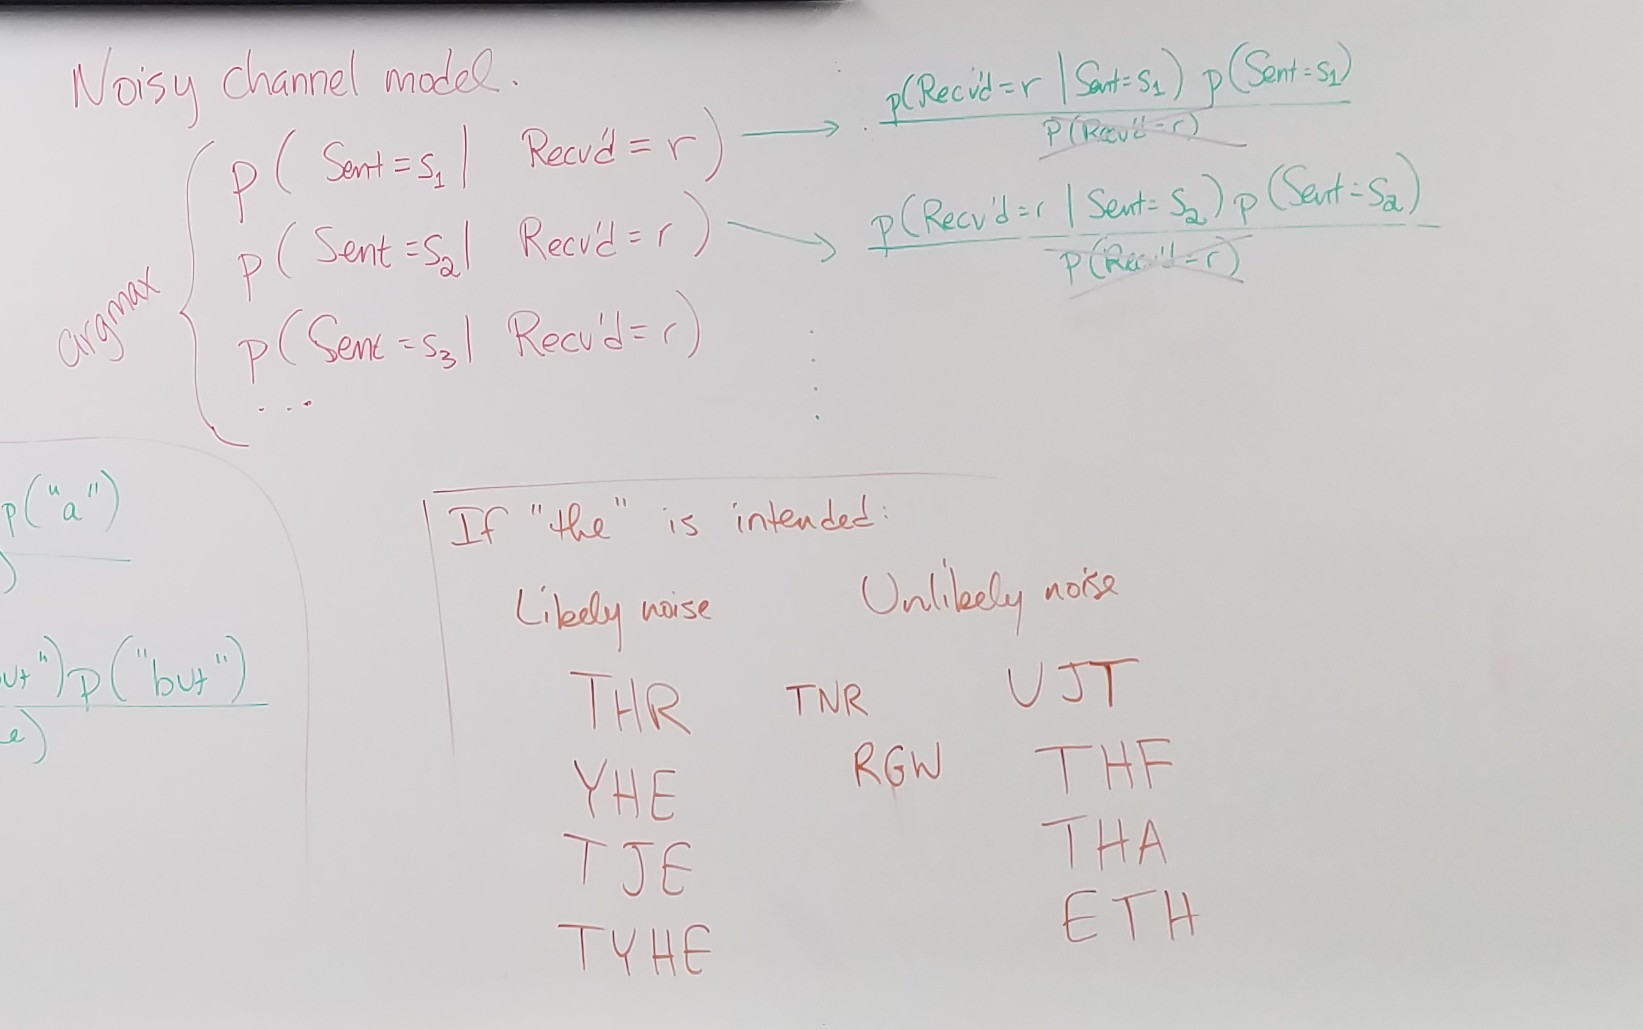 Noisy channel model.
argmax
p( Sent = s1 | Recv'd = r )
p( Sent = s2 | Recv'd = r )
p( Sent = s3 | Recv'd = r )
...
p(Recv'd = r | Sent = s1) p(Sent = s1)
p(Recv'd = r)
p(Recv'd = r | Sent = s2) p(Sent = s2)
p(Recv'd = r)
p("a")
)
ut") p("but")
e)
If "the" is intended:
Likely noise Unlikely noise
THR TNR UJT
YHE RGW THF
TJE THA
TYHE ETH